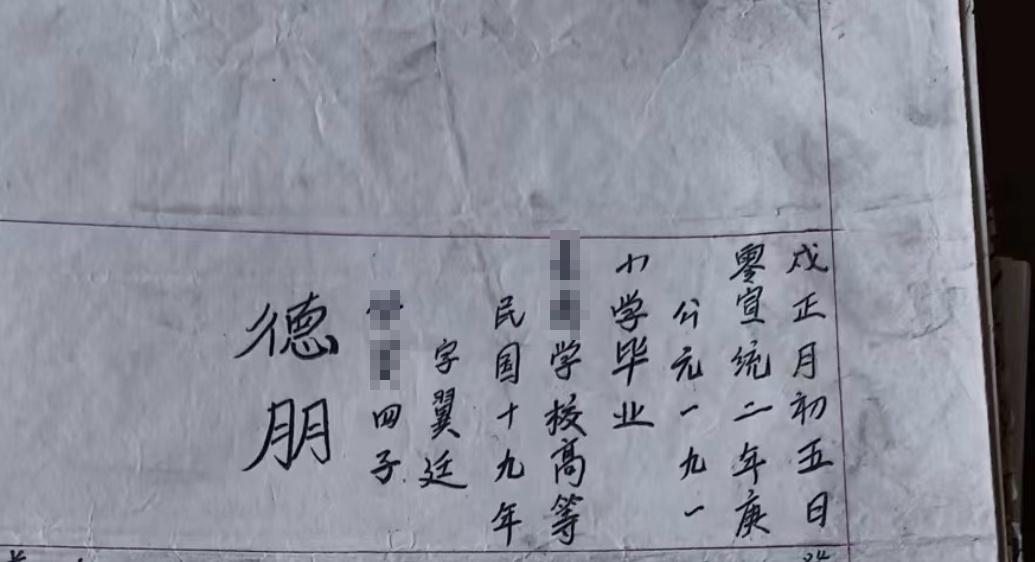 德朋
四子
字翼廷
民国十九年
学校高等
小学毕业
公元一九一
零宣统二年庚
戌正月初五日